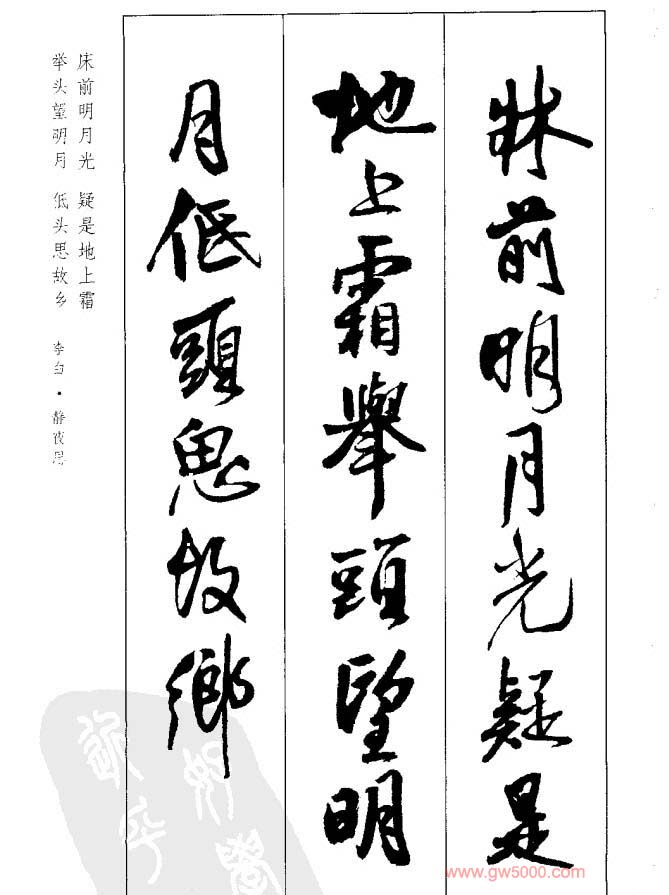 牀前明月光疑是
地上霜舉頭望明
月低頭思故鄉
床前明月光 疑是地上霜
举头望明月 低头思故乡 李白·静夜思
www.gw5000.com